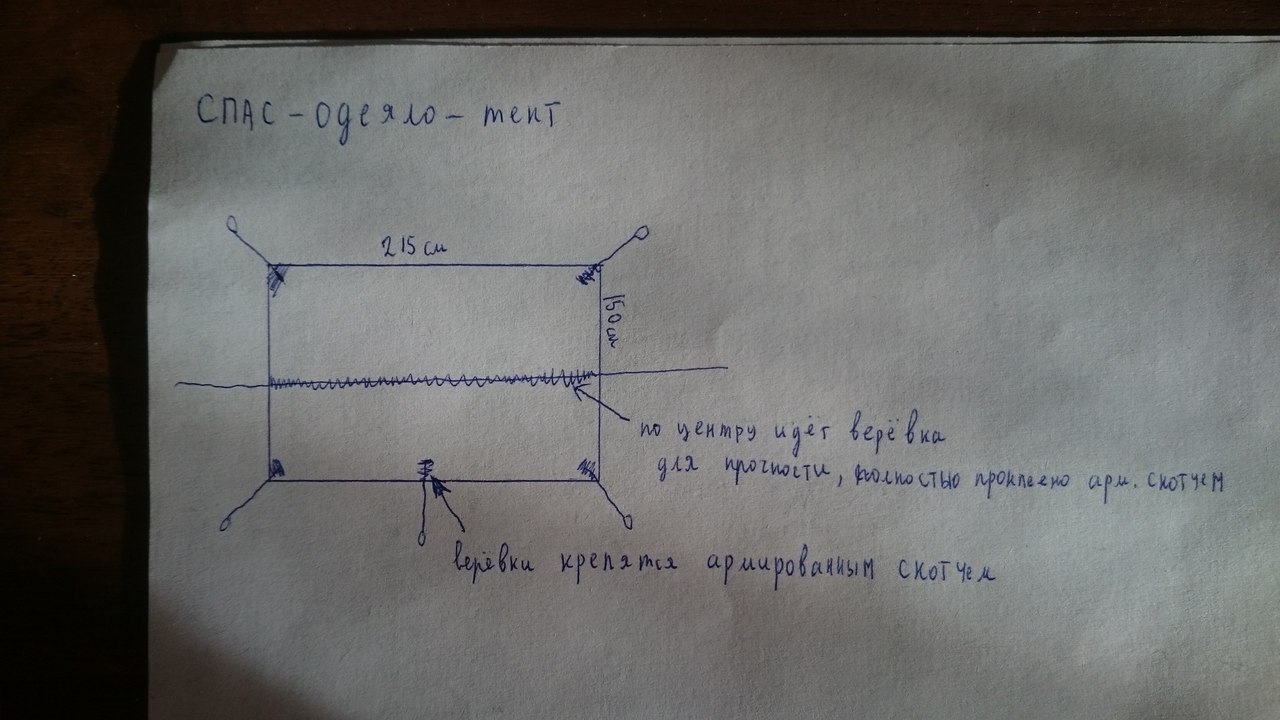 СПАС - одеяло - тент
215 см
150 см
по центру идёт верёвка
для прочности, полностью проклеено арм. скотчем
верёвки крепятся армированным скотчем